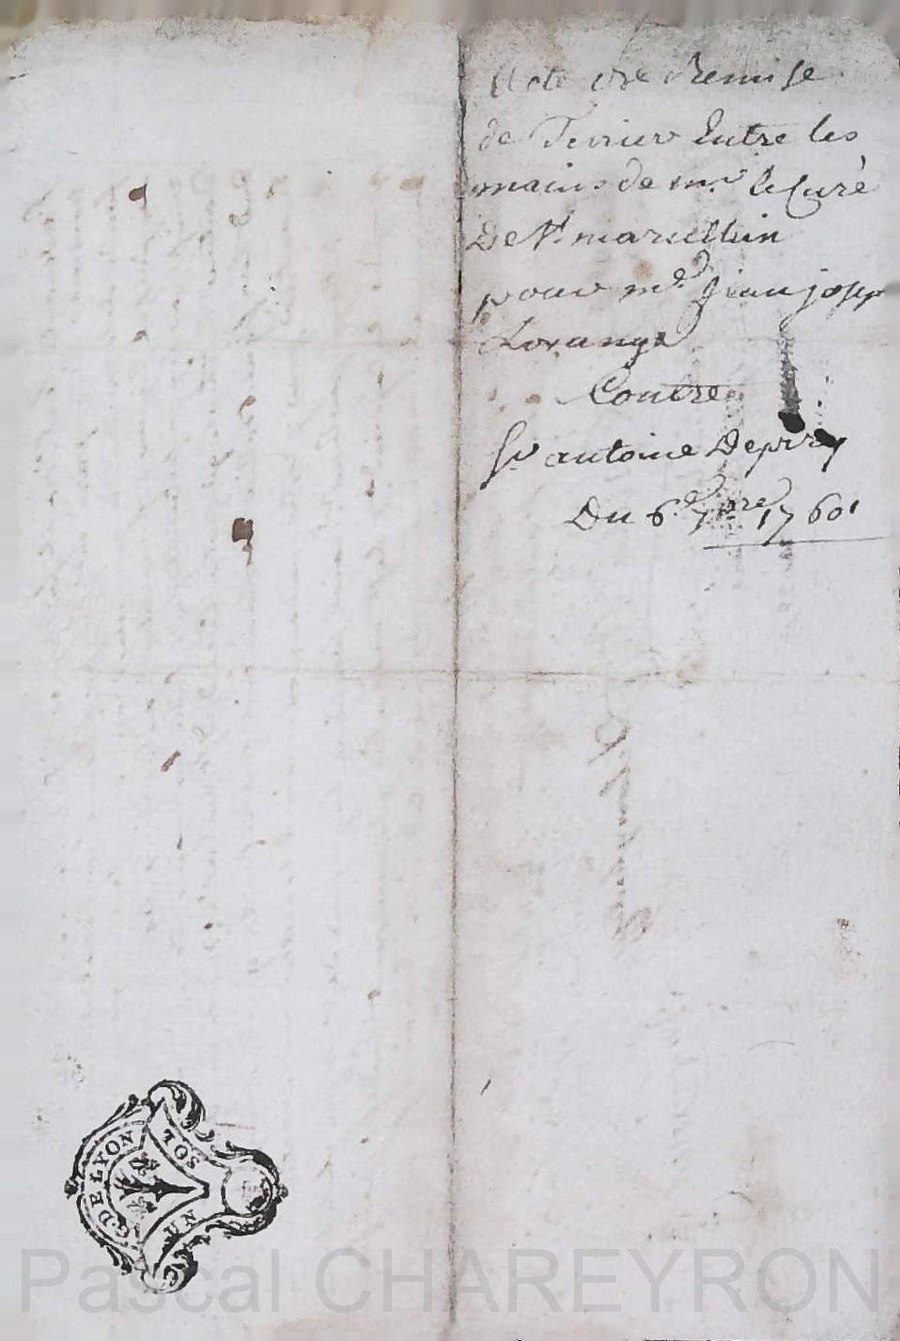 Acte de Remise
de Terrier Entre les
mains de mr. le Curé
De St. marcellin
pour me. Jean joseph
Lorange
Contre
Sr antoine Deprey
Du 6e. 7bre 1760
G. DE LYON
UN SOL
Pascal CHAREYRON